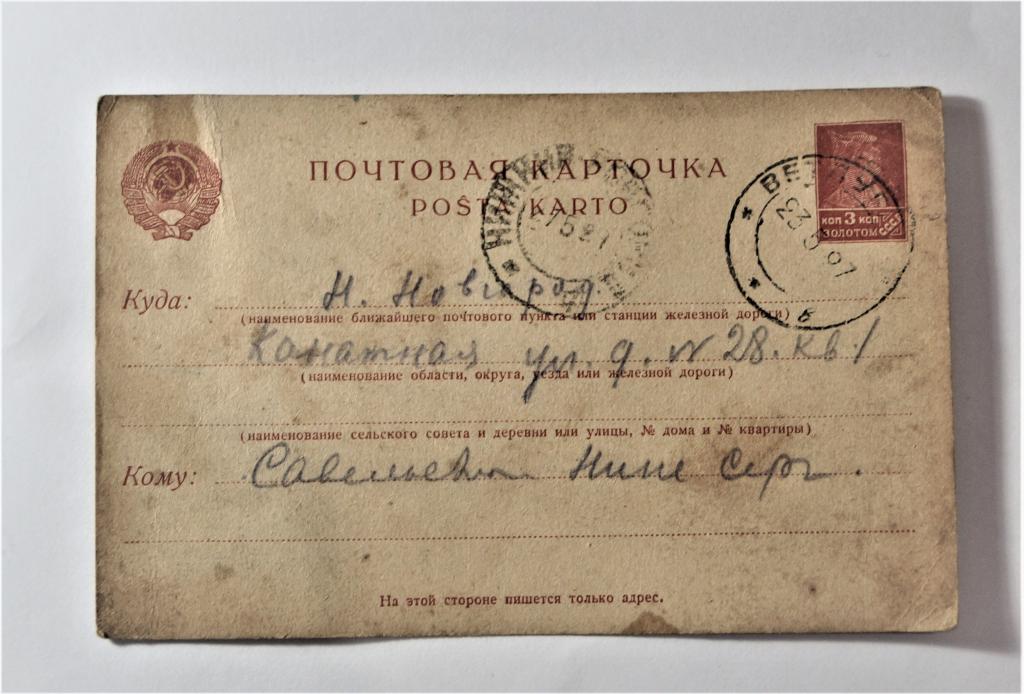 ПОЧТОВАЯ КАРТОЧКА
POŜTA KARTO
КОП 3 КОП
ЗОЛОТОМ
СССР
НИЖНИЙ
ВЕТЛУГА
23
Б
Куда: Н. Новгород.
(наименование ближайшего почтового пункта или станции железной дороги)
Канатная ул. д. № 28. кв. 1
(наименование области, округа, уезда или железной дороги)
(наименование сельского совета и деревни или улицы, № дома и № квартиры)
Кому: Нине Серг.
На этой стороне пишется только адрес.